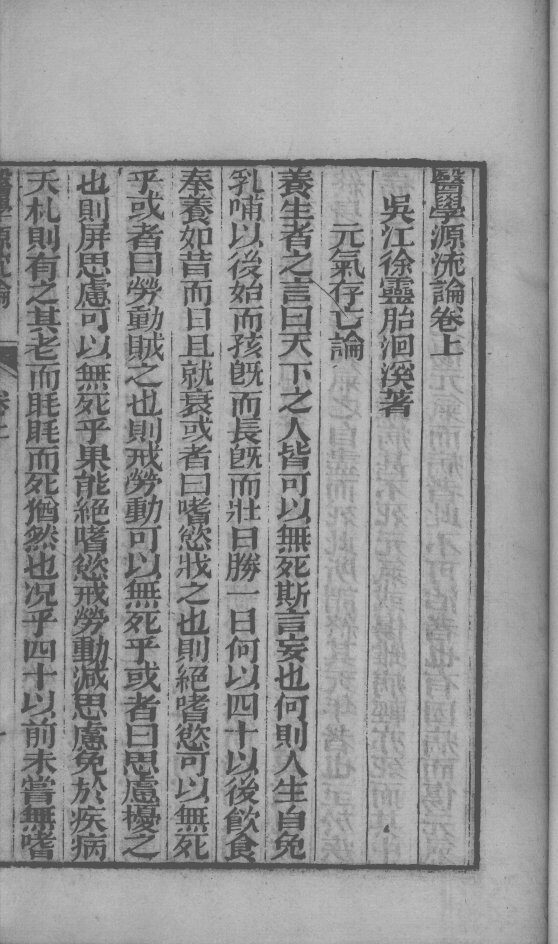 醫學源流論卷上
吳江徐靈胎洄溪著
元氣存亡論
養生者之言曰天下之人皆可以無死斯言妄也何則人生自免
乳哺以後始而孩旣而長旣而壯日勝一日何以四十以後飮食
奉養如昔而日且就衰或者曰嗜慾戕之也則絕嗜慾可以無死
乎或者曰勞動賊之也則戒勞動可以無死乎或者曰思慮擾之
也則屏思慮可以無死乎果能絕嗜慾戒勞動減思慮免於疾病
夭札則有之其老而眊眊而死猶然也况乎四十以前未嘗無嗜
醫學源流論 卷上